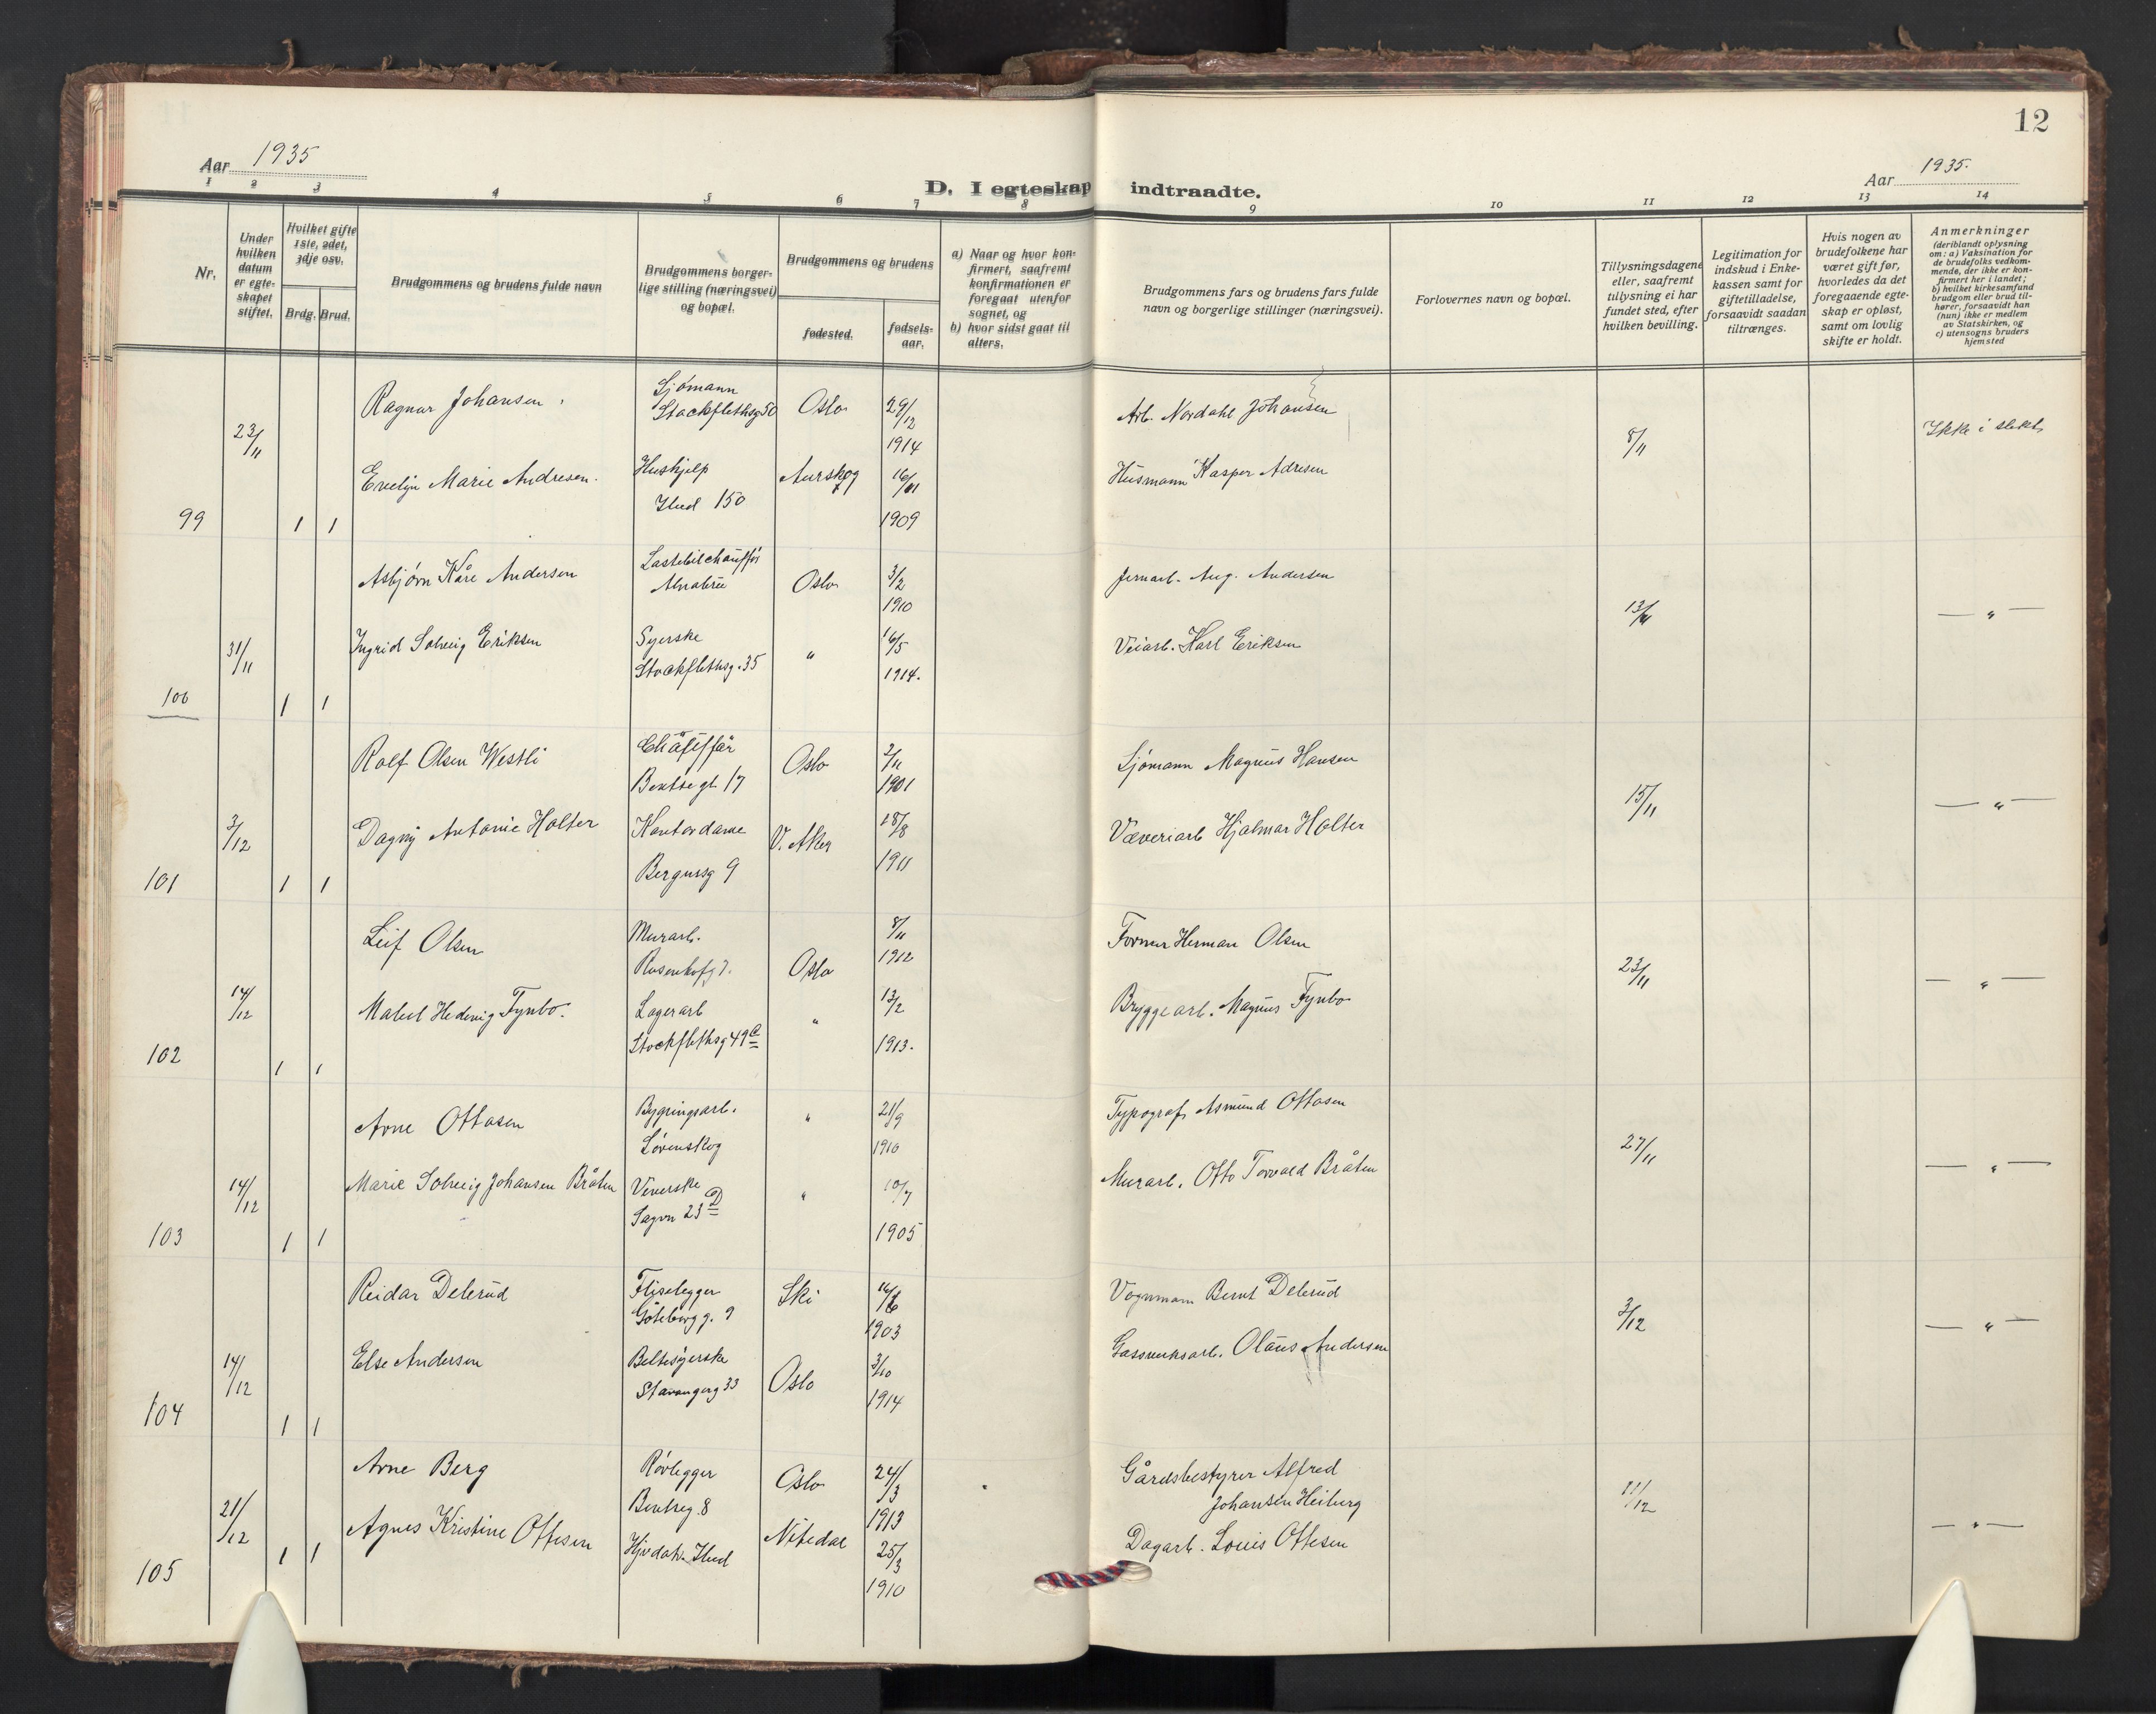 12
Aar 1935
Aar 1935.
D. I egteskap indtraadte.
1 2 3 4 5 6 7 8 9 10 11 12 13 14
Nr.
Under hvilken datum er egte-skapet stiftet.
Hvilket gifte 1ste, 2det, 3dje osv.
Brdg. Brud.
Brudgommens og brudens fulde navn
Brudgommens borger-lige stilling (næringsvei) og bopæl.
Brudgommens og brudens
fødested.
fødsels-aar.
a) Naar og hvor kon-firmert, saafremt konfirmationen er foregaat utenfor sognet, og
b) hvor sidst gaat til alters.
Brudgommens fars og brudens fars fulde navn og borgerlige stillinger (næringsvei).
Forlovernes navn og bopæl.
Tillysningsdagene eller, saafremt tillysning ei har fundet sted, efter hvilken bevilling.
Legitimation for indskud i Enke-kassen samt for giftetilladelse, forsaavidt saadan tiltrænges.
Hvis nogen av brudefolkene har været gift før, hvorledes da det foregaaende egte-skap er opløst, samt om lovlig skifte er holdt.
Anmerkninger
(deriblandt oplysning om: a) Vaksination for de brudefolks vedkom-mende, der ikke er kon-firmert her i landet; b) hvilket kirkesamfund brudgom eller brud til-hører, forsaavidt han (hun) ikke er medlem av Statskirken, og c) utensogns bruders hjemsted
Ragnar Johansen Sjømann Stockflethsg 50 Oslo 29/12 1914 Arb. Nordahl Johansen
23/11 8/11 Ikke i slekt
Evelyn Marie Andresen. Hushjelp Ilud 150 Aurskog 16/01 1909 Husmann Kasper Adresen
99 1 1
Asbjørn Kåre Andersen Lastebilchauffør Alnabru Oslo 3/2 1910 Jernarb. Aug. Andersen
13/11 — " —
31/11 Ingrid Solveig Eriksen Syerske Stockflethsg. 35 " 16/5 1914. Veiarb. Karl Eriksen
100 1 1
Rolf Olsen Westli Chauffør Bentsegt 17 Oslo 2/11 1901 Sjømann Magnus Hansen
15/11 — " —
3/12 Dagny Antonie Holter Kontordame Bergersg 9 V. Aker 18/8 1911 Væveriarb Hjalmar Holter
101 1 1
Leif Olsen Murarb. Rosenhofg 7. Oslo 8/11 1912 Former Herman Olsen
23/11 — " —
14/12 Mabel Hedevig Fynbo. Lagerarb Stockflethsg 49 a " 13/2 1913. Bryggearb. Magnus Fynbo
102 1 1
Arne Ottosen Bygningsarb. Lørenskog " 21/9 1910 Typograf Asmund Ottosen
27/11 — " —
14/12 Marie Solveig Johansen Bråten Veverske Sagvn 23 D " 10/7 1905 Murarb. Otto Torvald Bråten
103 1 1
Reidar Delerud Fliselegger Göteborgg. 9 Ski 16/6 1903 Vognmann Bernt Delerud
3/12 — " —
14/12 Else Andersen Beltesyerske Stavangerg 33 Oslo 3/10 1914 Gassverksarb. Olaus Andersen
104 1 1
Arne Berg Rørlegger Bentseg. 8 Oslo 24/3 1913 Gårdsbestyrer Alfred Johansen Heiberg
11/12 — " —
21/12 Agnes Kristine Ottesen Ilud Nitedal 25/3 1910 Dagarb. Louis Ottesen
105 1 1